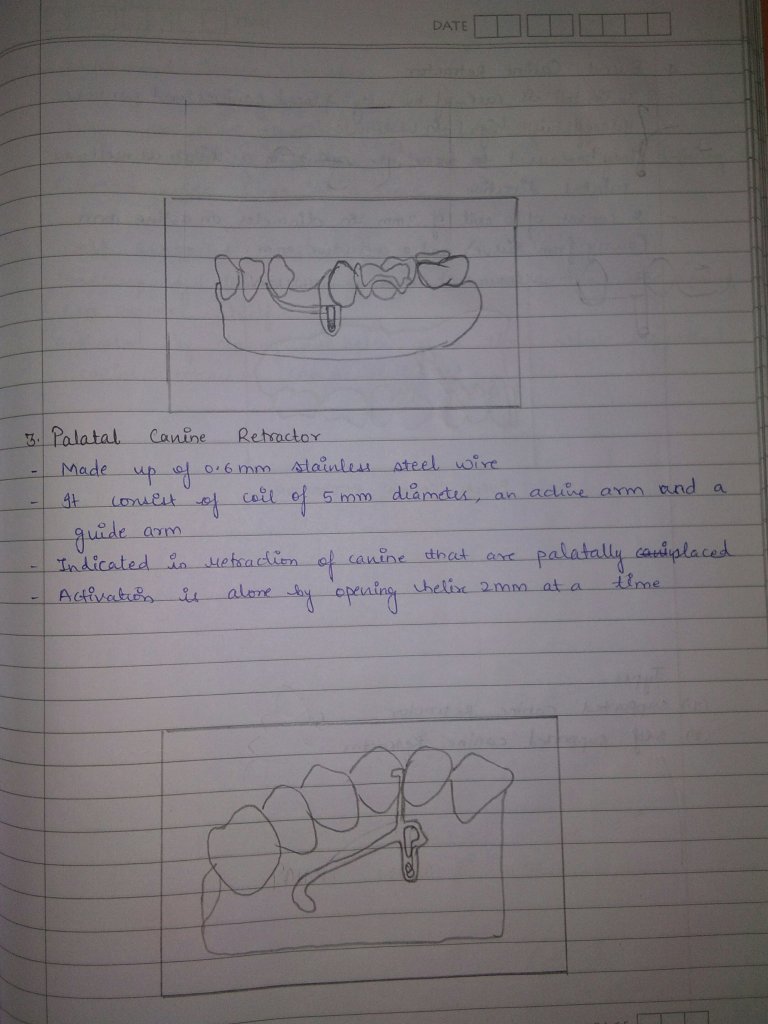 DATE
3. Palatal Canine Retractor
- Made up of 0.6mm stainless steel wire
- It consist of coil of 5mm diameter, an active arm and a
guide arm
- Indicated in retraction of canine that are palatally placed
- Activation is done by opening helix 2mm at a time